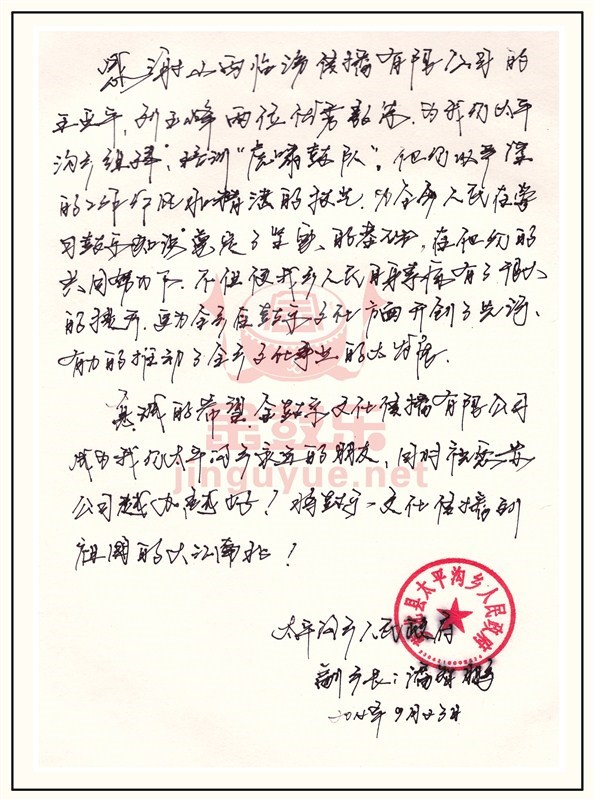 感谢山西临汾传播有限公司的
王亚平,刘玉峰两位优秀教练,为我们太平
沟乡组建、培训"虎啸鼓队"。他们以平深
的工作作风和精湛的技先,为全乡人民在学
习鼓乐知识奠定了坚实的基础,在他们的
共同努力下,不但使我乡人民身有了很大
的提升,更为全乡在鼓乐文化方面开创了先河、
有力的推动了全乡文化事业的大发展。
真诚的希望,金鼓乐文化传播有限公司
成为我们太平沟乡永远的朋友,同时祝贵
公司越加越好!将鼓乐文化传播到
祖国的大江南北!
太平沟乡人民政府
副乡长:潘
9月23日
县太平沟乡人民政府
金鼓乐
jinguyue.net